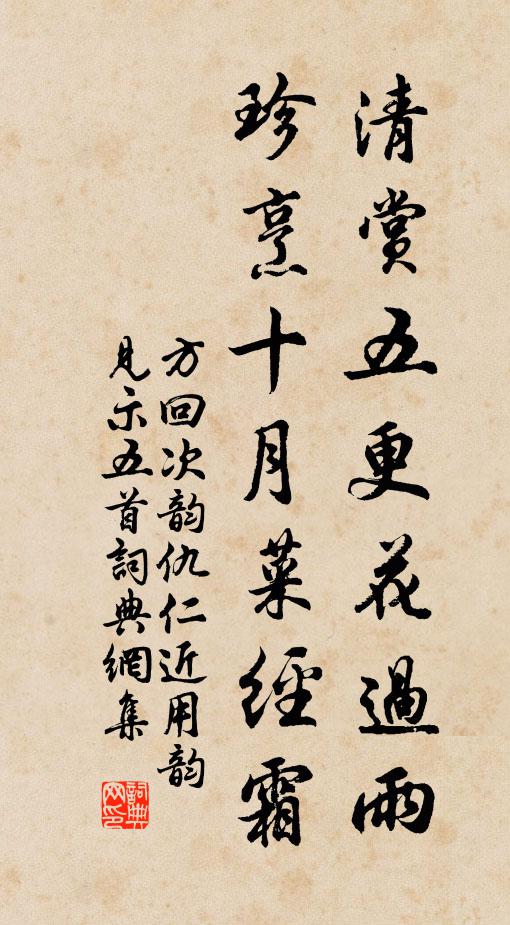 清賞五更花過雨
珍烹十月菜經霜
方回次韵仇仁近用韵
見示五首詞典網集
詞典网印